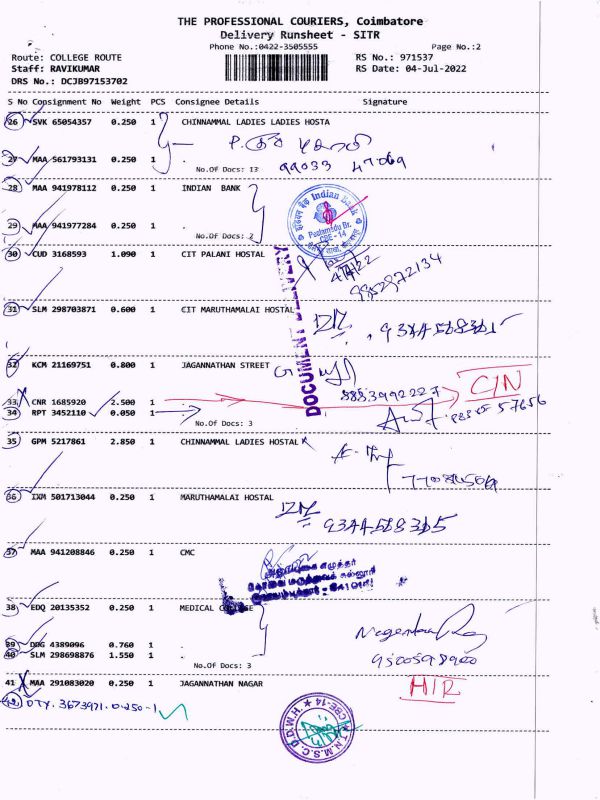 THE PROFESSIONAL COURIERS, Coimbatore
Delivery Runsheet - SITR
Phone No.:0422-3505555 Page No.:2
Route: COLLEGE ROUTE RS No.: 971537
Staff: RAVIKUMAR RS Date: 04-Jul-2022
DRS No.: DCJB97153702
S No Consignment No Weight PCS Consignee Details Signature
26 SVK 65054357 0.250 1 CHINNAMMAL LADIES LADIES HOSTA
27 MAA 561793131 0.250 1
No.Of Docs: 13
99033 47069
28 MAA 941978112 0.250 1 INDIAN BANK
Indian Bank
Peelamedu Br.
CBE - 14
29 MAA 941977284 0.250 1
No.Of Docs: 2
30 CUD 3168593 1.090 1 CIT PALANI HOSTAL
4/7/22
9952972134
DOCUMENT DELIVERY
31 SLM 298703871 0.600 1 CIT MARUTHAMALAI HOSTAL
32 KCM 21169751 0.800 1 JAGANNATHAN STREET
8883992227
C/N
33 CNR 1685920 2.500 1
34 RPT 3452110 0.050 1
No.Of Docs: 3
35 GPM 5217861 2.850 1 CHINNAMMAL LADIES HOSTAL
36 IXM 501713044 0.250 1 MARUTHAMALAI HOSTAL
37 MAA 941208846 0.250 1 CMC
38 EDQ 20135352 0.250 1 MEDICAL COLLEGE
39 DDG 4389096 0.760 1
40 SLM 298698876 1.550 1
No.Of Docs: 3
9500598900
41 MAA 291083020 0.250 1 JAGANNATHAN NAGAR
H/R
42 DTY. 3673971. 0.250 - 1
CBE-14